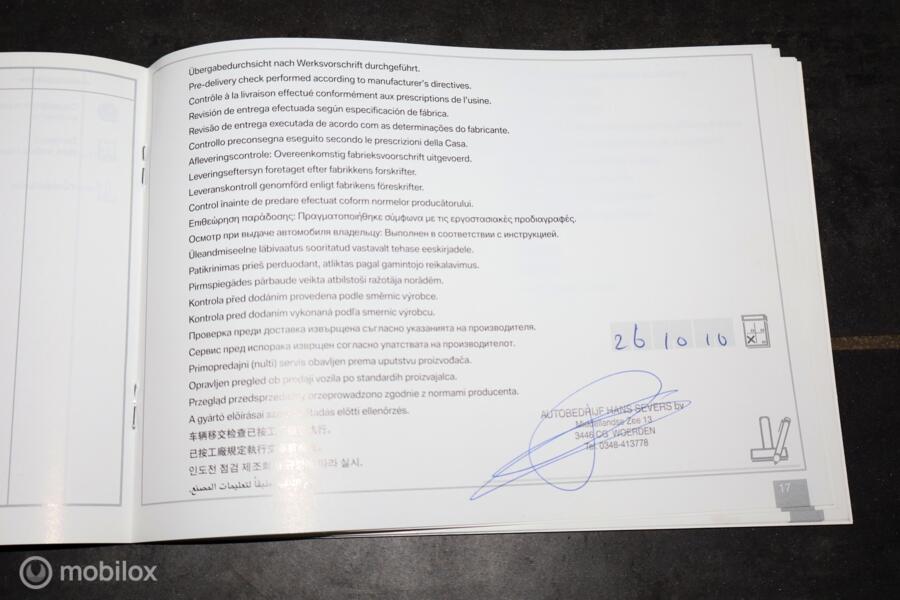 Übergabedurchsicht nach Werksvorschrift durchgeführt.
Pre-delivery check performed according to manufacturer's directives.
Contrôle à la livraison effectué conformément aux prescriptions de l'usine.
Revisión de entrega efectuada según especificación de fábrica.
Revisão de entrega executada de acordo com as determinações do fabricante.
Controllo preconsegna eseguito secondo le prescrizioni della Casa.
Afleveringscontrole: Overeenkomstig fabrieksvoorschrift uitgevoerd.
Leveringseftersyn foretaget efter fabrikkens forskrifter.
Leveranskontroll genomförd enligt fabrikens föreskrifter.
Control înainte de predare efectuat coform normelor producătorului.
Επιθεώρηση παράδοσης: Πραγματοποιήθηκε σύμφωνα με τις εργοστασιακές προδιαγραφές.
Осмотр при выдаче автомобиля владельцу: Выполнен в соответствии с инструкцией.
Üleandmiseelne läbivaatus sooritatud vastavalt tehase eeskirjadele.
Patikrinimas prieš perduodant, atliktas pagal gamintojo reikalavimus.
Pirmspiegādes pārbaude veikta atbilstoši ražotāja norādēm.
Kontrola před dodáním provedena podle směrnic výrobce.
Kontrola pred dodaním vykonaná podľa smerníc výrobcu.
Проверка преди доставка извършена съгласно указанията на производителя.
Сервис пред испорака извршен согласно упатствата на производителот.
Primopredajni (nulti) servis obavljen prema uputstvu proizvođača.
Opravljen pregled ob predaji vozila po standardih proizvajalca.
Przegląd przeprowadzono zgodnie z normami producenta.
A gyártó előírásai előtti ellenőrzés.
车辆移交检查已按工 执行.
已按工廠規定執行
인도전 점검 제조회 따라 실시.
طبقاً لتعليمات المصنع.
26 10 10
AUTOBEDRIJF HANS SEVERS bv
Middellandse Zee 13
3446 CG WOERDEN
Tel. 0348-413778
17
mobilox